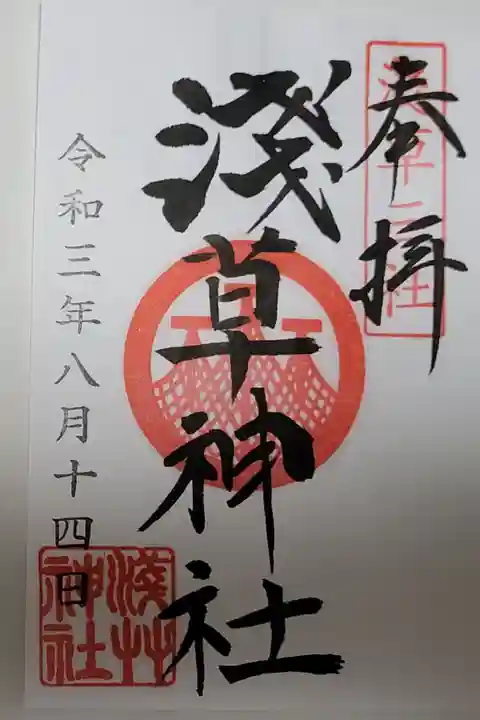 奉拝
淺草三社
淺草神社
淺艸神社
令和三年八月十四日